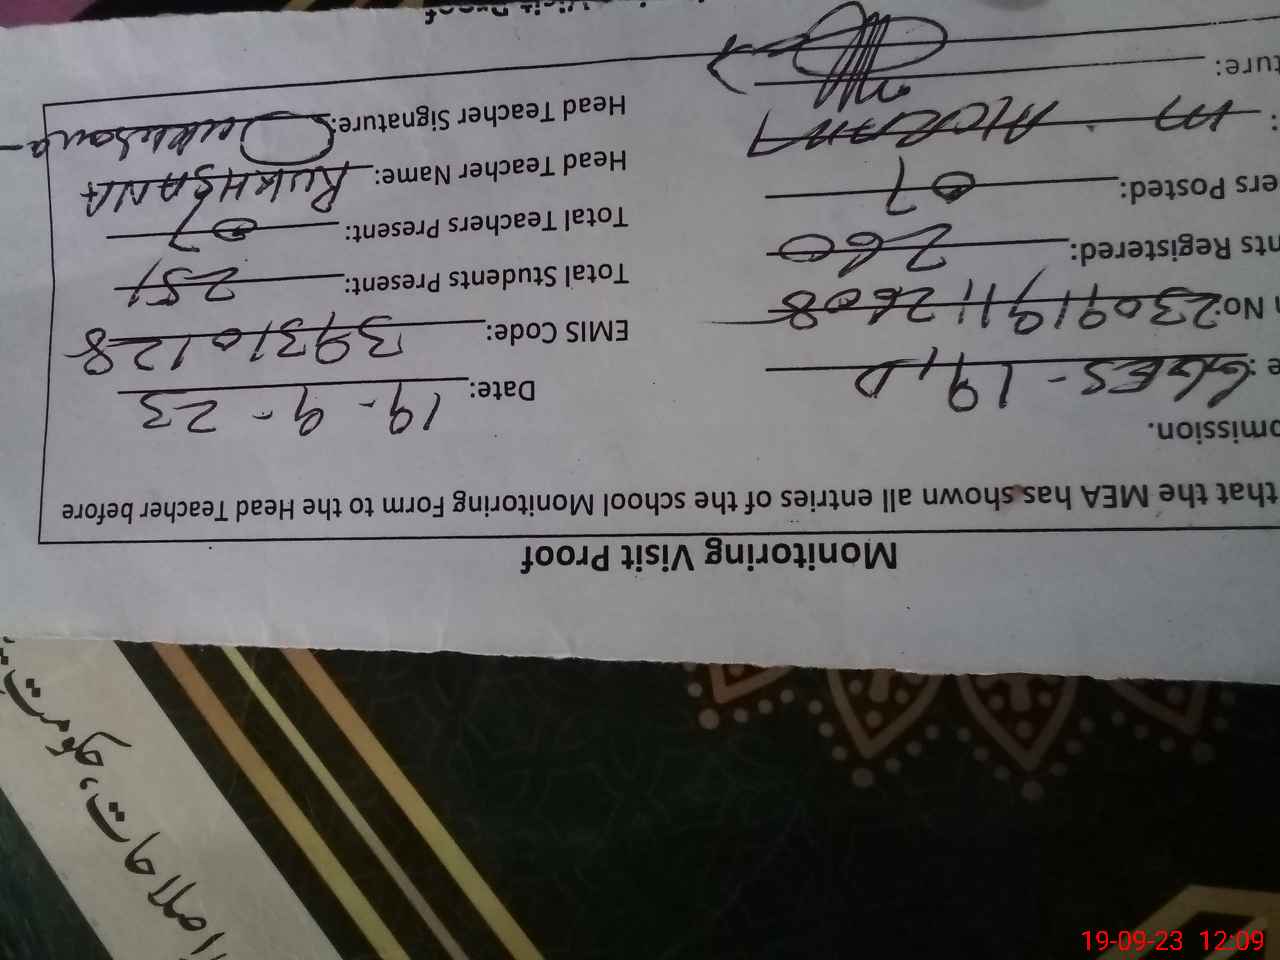 Monitoring Visit Proof
that the MEA has shown all entries of the school Monitoring Form to the Head Teacher before
omission.
e : GGES - 19, D Date: 19 - 9 - 23
n No: 230919112608 EMIS Code: 39310128
nts Registered: 260 Total Students Present: 251
ers Posted: 07 Total Teachers Present: 07
: M. AKRAM Head Teacher Name: RUKHSANA
ture: Head Teacher Signature: Rukhsana
Visit Proof
اصلاحات، حکومت
19-09-23 12:09